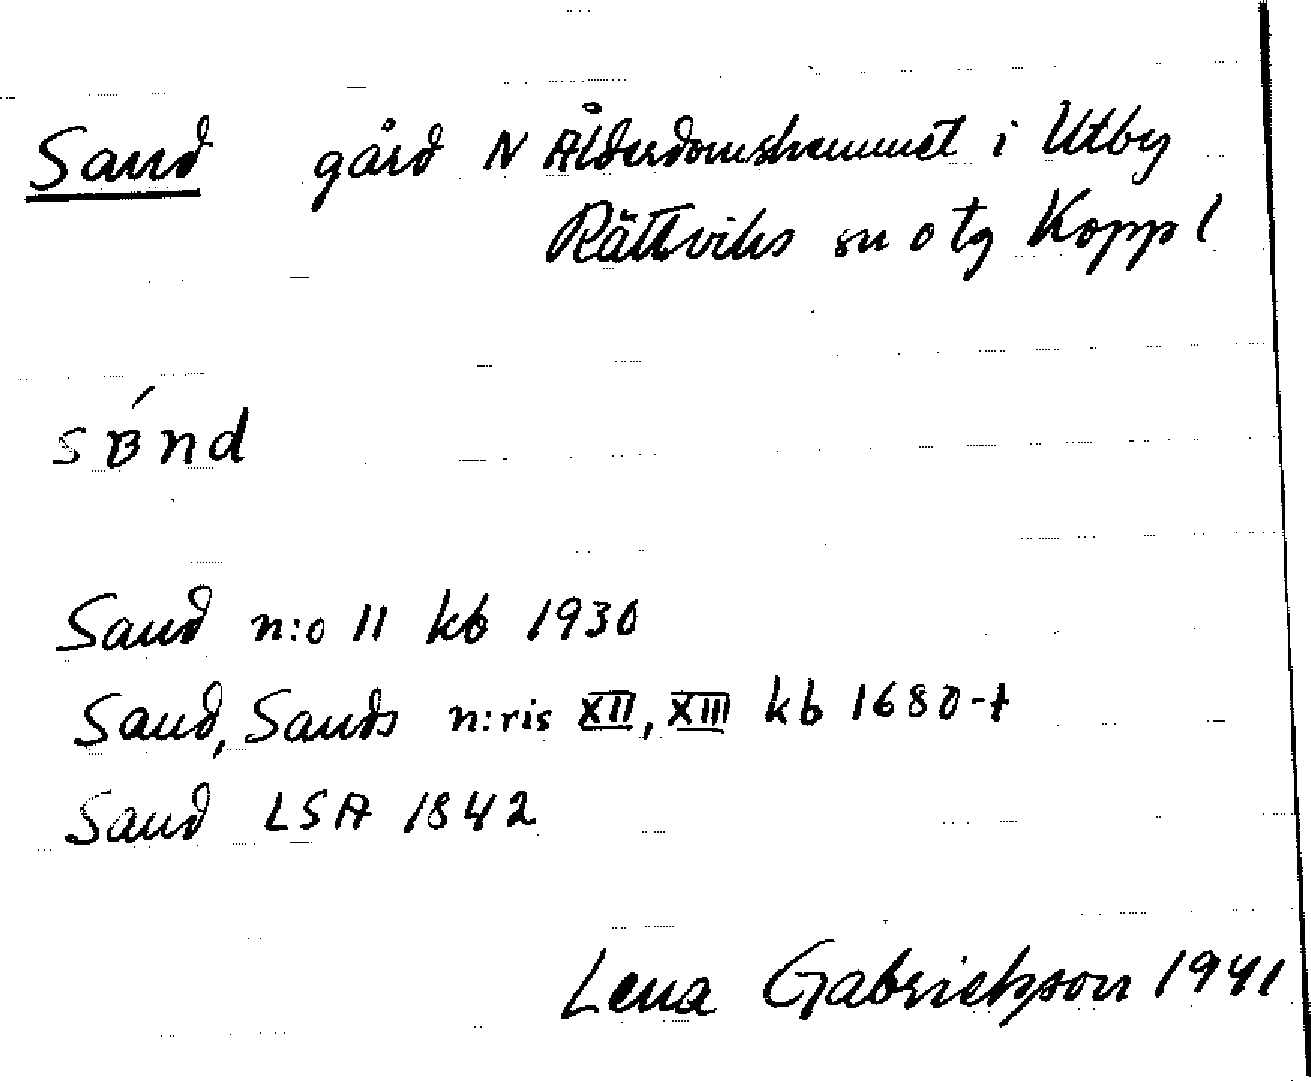 Sand gård N Ålderdomshemmet i Utby
Rättviks sn o tg Kopp l
sʙ́nd
Sand n:o 11 kb 1930
Sand, Sands n:ris XII, XIII kb 1680-t
Sand LSA 1842
Lena Gabrielsson 1941